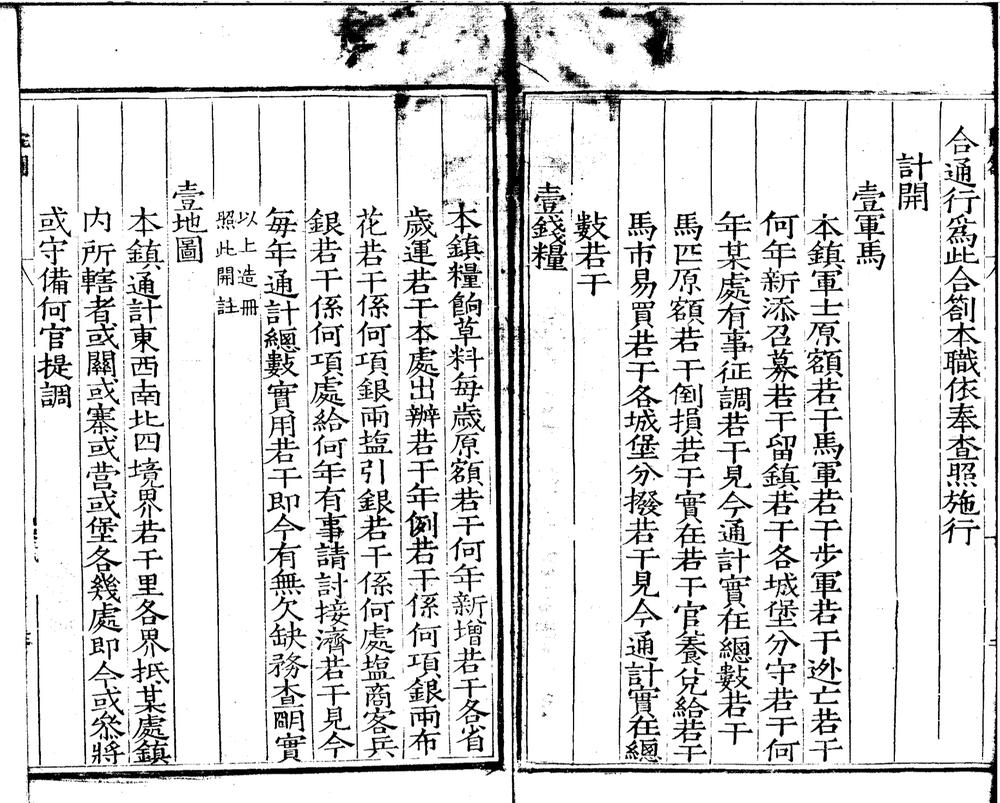 合通行爲此合劄本職依奉查照施行
計開
壹軍馬
本鎮軍士原額若干馬軍若干步軍若干逃亡若干
何年新添召募若干留鎮若干各城堡分守若干何
年某處有事征調若干見今通計實在緫數若干
馬匹原額若干倒損若干實在若干官養兌給若干
馬市易買若干各城堡分撥若干見今通計實在緫
數若干
壹錢糧
本鎮糧餉草料每歲原額若干何年新增若干各省
歲運若干本處出辦若干年例若干係何項銀兩布
花若干係何項銀兩塩引銀若干係何處塩商客兵
銀若干係何項處給何年有事請討接濟若干見今
每年通計緫數實用若干即今有無欠缺務查明實
以上造冊
照此開註
壹地圖
本鎮通計東西南北四境界若干里各界抵某處鎮
内所轄者或關或寨或营或堡各幾處即今或叅將
或守備何官提調